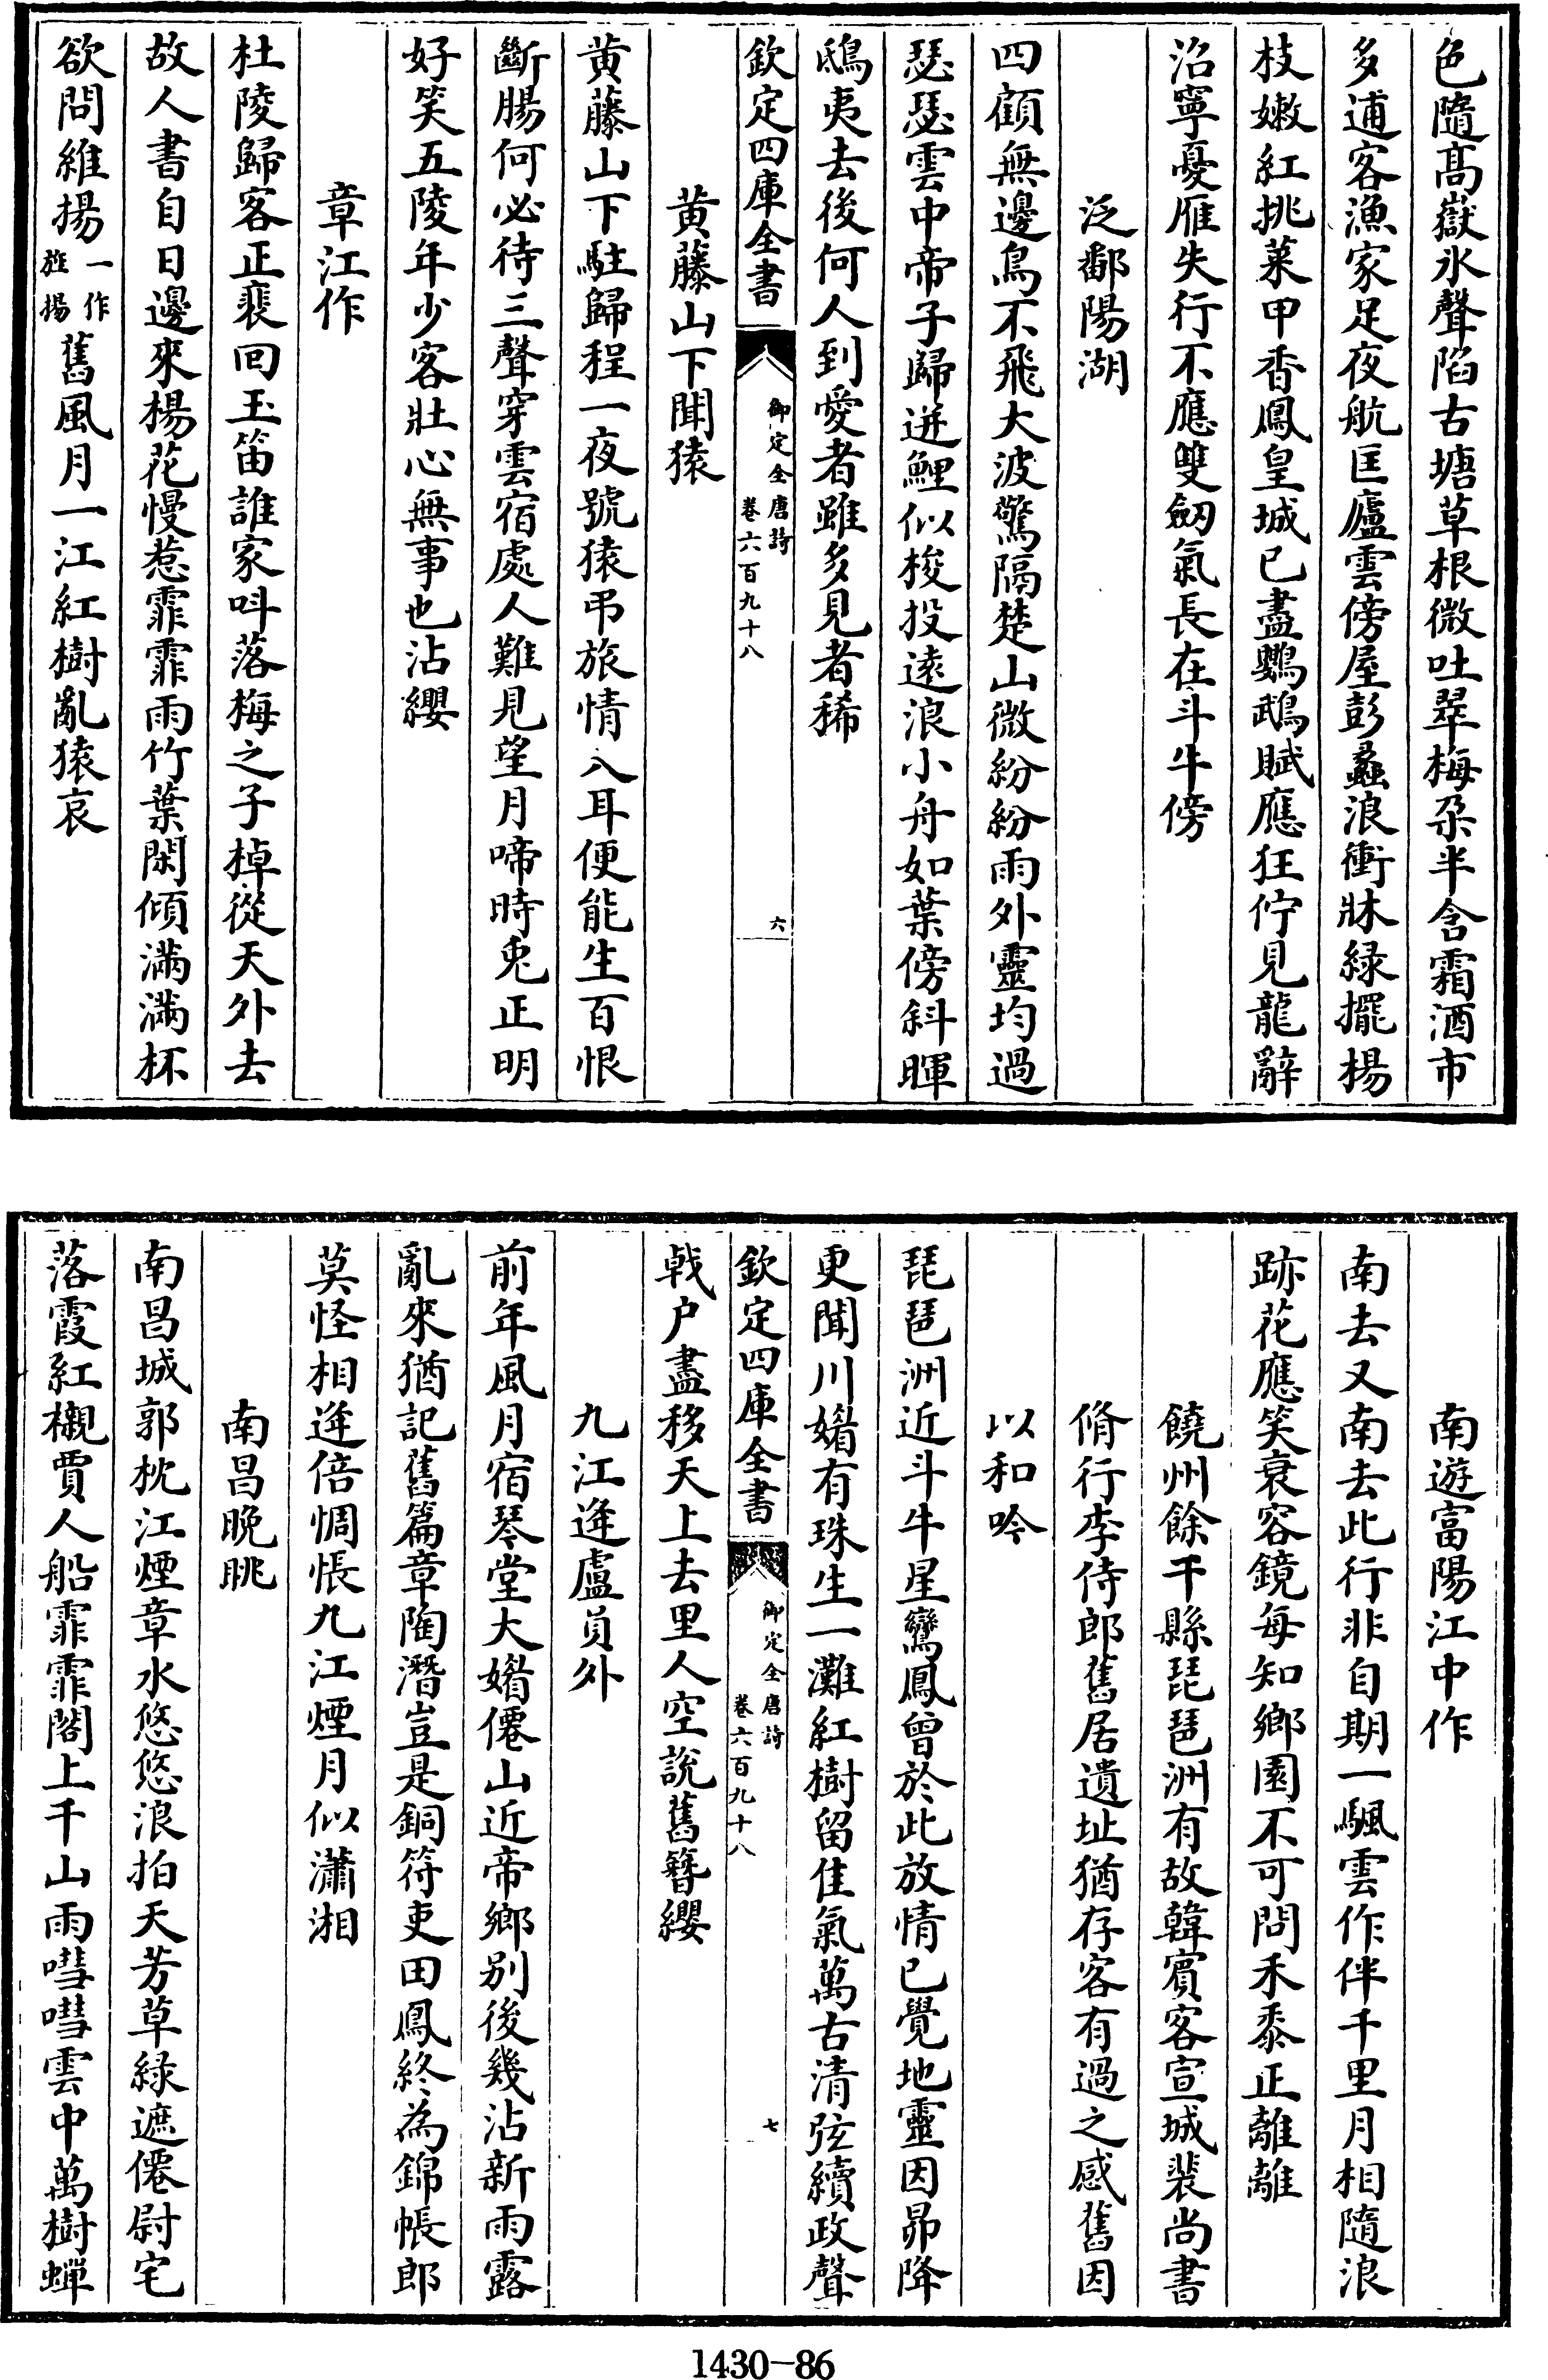 色隨髙嶽氷聲陷古塘草根微吐翠梅朶半含霜酒市
多逋客漁家足夜航匡廬雲傍屋彭蠡浪衝牀緑擺楊
枝嫩紅挑菜甲香鳳皇城已盡鸚鵡賦應狂佇見龍辭
沼寧憂雁失行不應雙劒氣長在斗牛傍
泛鄱陽湖
四顧無邊鳥不飛大波驚隔楚山微紛紛雨外靈均過
瑟瑟雲中帝子歸迸鯉似梭投遠浪小舟如葉傍斜暉
鴟夷去後何人到愛者雖多見者稀
欽定四庫全書
御定全唐詩
卷六百九十八
六
黄藤山下聞猿
黄藤山下駐歸程一夜號猿弔旅情入耳便能生百恨
斷腸何必待三聲穿雲宿處人難見望月啼時兎正明
好笑五陵年少客壯心無事也沾纓
章江作
杜陵歸客正裴回玉笛誰家呌落梅之子棹從天外去
故人書自日邊來楊花慢惹霏霏雨竹葉閑傾滿滿杯
欲問維揚一作旌揚舊風月一江紅樹亂猿哀
南遊富陽江中作
南去又南去此行非自期一颿雲作伴千里月相隨浪
跡花應笑衰容鏡每知鄉園不可問禾黍正離離
饒州餘干縣琵琶洲有故韓賓客宣城裴尚書
脩行李侍郎舊居遺址猶存客有過之感舊因
以和吟
琵琶洲近斗牛星鸞鳳曾於此放情已覺地靈因昴降
更聞川媚有珠生一灘紅樹留佳氣萬古清弦續政聲
欽定四庫全書
御定全唐詩
卷六百九十八
七
戟户盡移天上去里人空說舊簪纓
九江逢盧員外
前年風月宿琴堂大媚僊山近帝鄉别後幾沾新雨露
亂來猶記舊篇章陶潛豈是銅符吏田鳳終為錦帳郎
莫怪相逢倍惆悵九江煙月似瀟湘
南昌晚眺
南昌城郭枕江煙章水悠悠浪拍天芳草緑遮僊尉宅
落霞紅襯賈人船霏霏閣上千山雨嘒嘒雲中萬樹蟬
1430-86